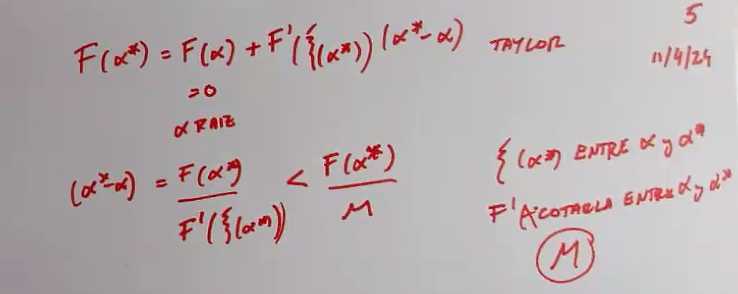 5
F(α*) = F(α) + F'(ξ(α*)) (α*-α) TAYLOR
11/4/24
=0
α RAIZ
(α*-α) = F(α*) / F'(ξ(α*)) < F(α*) / M
ξ(α*) ENTRE α y α*
F' ACOTARLA ENTRE α y α*
M